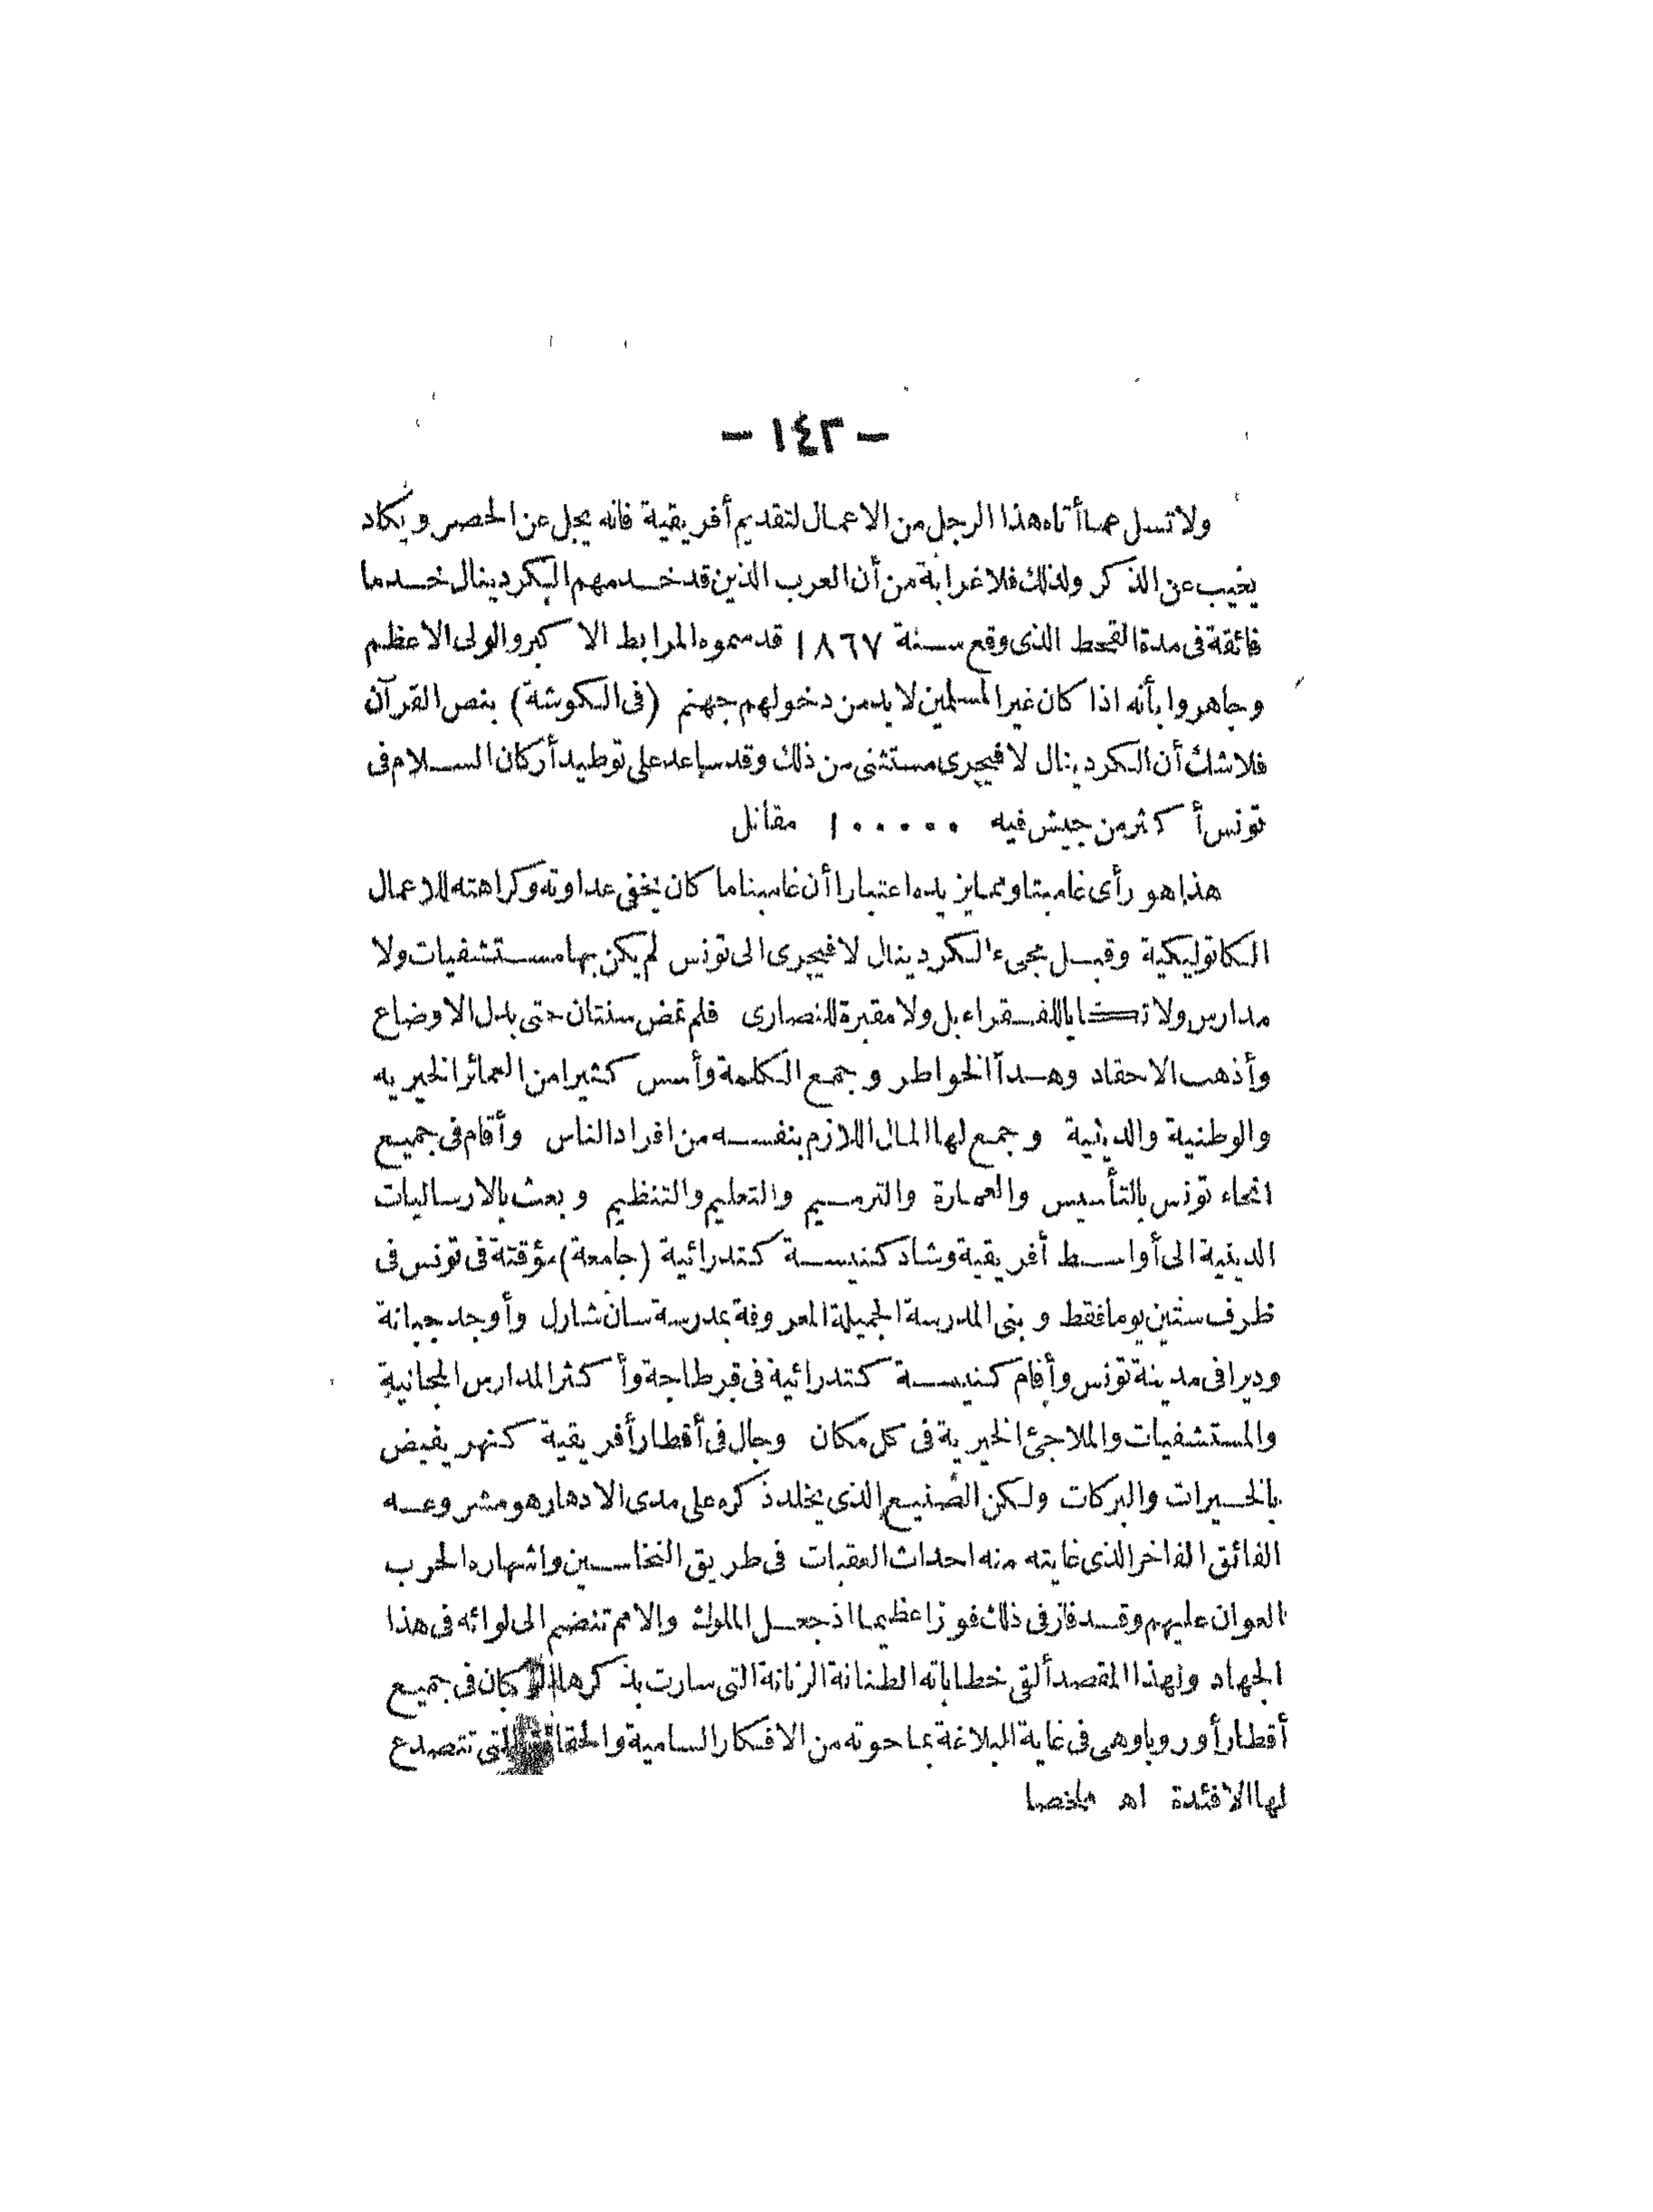 — ١٤٢ —
ولا تسل عما أتاه هذا الرجل من الاعمال لتقديم أفريقية فانه يجل عن الحصر ويكاد
يغيب عن الذكر ولذلك فلا غرابة من أن العرب الذين قد خدمهم الكردينال خدما
فائقة فى مدة القحط الذى وقع سنة ١٨٦٧ قد سموه المرابط الاكبر والولى الاعظم
وجاهروا بأنه اذا كان غير المسلمين لا بد من دخولهم جهنم (فى الكوشة) بنص القرآن
فلا شك أن الكردينال لافيجرى مستثنى من ذلك وقد ساعد على توطيد أركان السلام فى
تونس أكثر من جيش فيه ١٠٠٠٠٠ مقاتل
هذا هو رأى غامبتا ومما يزيده اعتبارا أن غامبتا ما كان يخفى عداوته وكراهته للاعمال
الكاتوليكية وقبل مجىء الكردينال لافيجرى الى تونس لم يكن بها مستشفيات ولا
مدارس ولا تكايا للفقراء بل ولا مقبرة للنصارى فلم تمض سنتان حتى بدل الاوضاع
وأذهب الاحقاد وهدأ الخواطر وجمع الكلمة وأسس كثيرا من العمائر الخيريه
والوطنية والدينية وجمع لها المال اللازم بنفسه من افراد الناس وأقام فى جميع
انحاء تونس بالتأسيس والعمارة والترميم والتعليم والتنظيم وبعث بالارساليات
الدينية الى أواسط أفريقية وشاد كنيسة كتدرائية (جامعة) مؤقتة فى تونس فى
ظرف ستين يوما فقط وبنى المدرسة الجميلة المعروفة بمدرسة سان شارل وأوجد جبانة
وديرا فى مدينة تونس وأقام كنيسة كتدرائية فى قرطاجة وأكثر المدارس المجانية
والمستشفيات والملاجئ الخيرية فى كل مكان وجال فى أقطار أفريقية كنهر يفيض
بالخيرات والبركات ولكن الصنيع الذى يخلد ذكره على مدى الادهار هو مشروعه
الفائق الفاخر الذى غايته منه احداث العقبات فى طريق النخاسين واشهاره الحرب
العوان عليهم وقد فاز فى ذلك فوزا عظيما اذ جعل الملوك والامم تنضم الى لوائه فى هذا
الجهاد ولهذا المقصد ألقى خطاباته الطنانة الرنانة التى سارت بذكرها الركبان فى جميع
أقطار أوروبا وهى فى غاية البلاغة بما حوته من الافكار السامية والحقائق التى تتصدع
لها الافئدة اهـ ملخصا